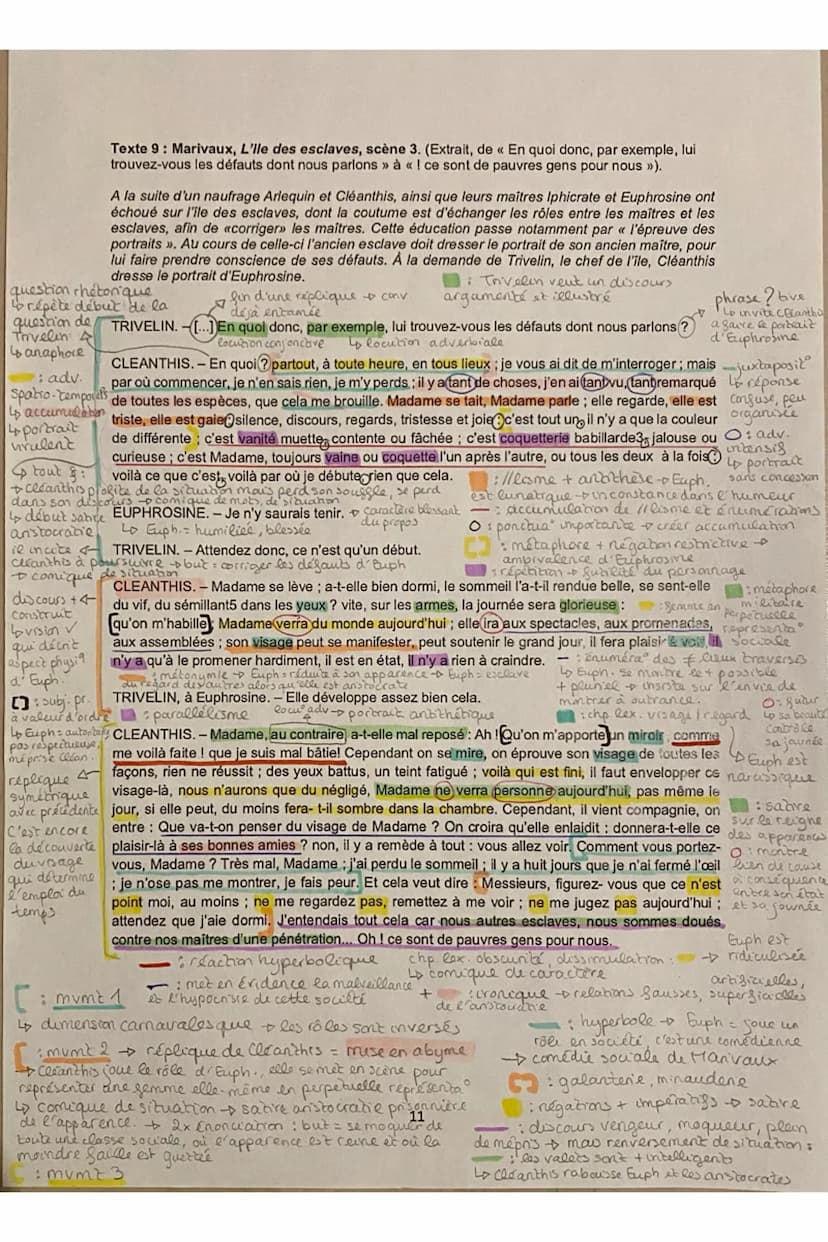 Texte 9 : Marivaux, L'Ile des esclaves, scène 3. (Extrait, de « En quoi donc, par exemple, lui
trouvez-vous les défauts dont nous parlons » à « ! ce sont de pauvres gens pour nous »).
A la suite d'un naufrage Arlequin et Cléanthis, ainsi que leurs maîtres Iphicrate et Euphrosine ont
échoué sur l'île des esclaves, dont la coutume est d'échanger les rôles entre les maîtres et les
esclaves, afin de «corriger» les maîtres. Cette éducation passe notamment par « l'épreuve des
portraits ». Au cours de celle-ci l'ancien esclave doit dresser le portrait de son ancien maître, pour
lui faire prendre conscience de ses défauts. À la demande de Trivelin, le chef de l'île, Cléanthis
dresse le portrait d'Euphrosine.
: Trivelin veut un discours
argumenté et illustré
question rhétorique
↳ répète début de la
question de
Trivelin
↳ anaphore
fin d'une réplique → conv
déjà entamée
phrase ? tive
↳ invite Cléanthis
à faire le portrait
d'Euphrosine
TRIVELIN. – [...] En quoi donc, par exemple, lui trouvez-vous les défauts dont nous parlons ?
locution conjonctive ↳ locution adverbiale
: adv.
spatio-temporels
↳ accumulation
↳ portrait
virulent
CLEANTHIS. – En quoi ? partout, à toute heure, en tous lieux ; je vous ai dit de m'interroger ; mais
par où commencer, je n'en sais rien, je m'y perds ; il y a tant de choses, j'en ai tant vu, tant remarqué
de toutes les espèces, que cela me brouille. Madame se tait, Madame parle ; elle regarde, elle est
triste, elle est gaie : silence, discours, regards, tristesse et joie : c'est tout un, il n'y a que la couleur
de différente ; c'est vanité muette, contente ou fâchée ; c'est coquetterie babillarde3, jalouse ou
curieuse ; c'est Madame, toujours vaine ou coquette l'un après l'autre, ou tous les deux à la fois :
voilà ce que c'est, voilà par où je débute, rien que cela.
juxtapositº
↳ réponse
confuse, peu
organisée
: adv.
intensifs
↳ portrait
sans concession
↳ tout § :
→ Cléanthis profite de la situation mais perd son souffle, se perd
dans son discours → comique de mots, de situation
↳ début satire
aristocratie
: //lisme + antithèse → Euph.
est lunatique → inconstance dans l'humeur
: accumulation de //lisme et énumérations
: ponctuaº importante → créer accumulation
: métaphore + négation restrictive →
ambivalence d'Euphrosine
: répétition → futilité du personnage
EUPHROSINE. – Je n'y saurais tenir.
→ caractère blessant
du propos
↳ Euph. = humiliée, blessée
TRIVELIN. – Attendez donc, ce n'est qu'un début.
il incite
Cléanthis à poursuivre → but = corriger les défauts d'Euph
→ comique de situation
CLEANTHIS. – Madame se lève ; a-t-elle bien dormi, le sommeil l'a-t-il rendue belle, se sent-elle
du vif, du sémillant5 dans les yeux ? vite, sur les armes, la journée sera glorieuse :
qu'on m'habille ; Madame verra du monde aujourd'hui ; elle ira aux spectacles, aux promenades,
aux assemblées ; son visage peut se manifester, peut soutenir le grand jour, il fera plaisir à voir, il
n'y a qu'à le promener hardiment, il est en état, il n'y a rien à craindre.
discours +
construit
↳ vision
qui décrit
aspect physiq
d'Euph.
: métaphore
militaire
: femme en
perpétuelle
représentaº
sociale
: métonymie → Euph réduite à son apparence → Euph = esclave
du regard des autres alors qu'elle est aristocrate
: énuméraº des ≠ lieux traversés
↳ Euph. se montre le + possible
+ pluriel → insiste sur l'envie de
montrer à outrance.
: subj. pr.
à valeur d'ordre
↳ Euph = autoritaire
pas respectueuse,
méprise Cléan.
TRIVELIN, à Euphrosine. – Elle développe assez bien cela.
: parallélisme
locuº adv → portrait antithétique
: chp lex. visage / regard
: futur
↳ sa beauté
contrôle
sa journée
CLEANTHIS. – Madame, au contraire, a-t-elle mal reposé : Ah ! Qu'on m'apporte un miroir ; comme
me voilà faite ! que je suis mal bâtie! Cependant on se mire, on éprouve son visage de toutes les
façons, rien ne réussit ; des yeux battus, un teint fatigué ; voilà qui est fini, il faut envelopper ce
visage-là, nous n'aurons que du négligé, Madame ne verra personne aujourd'hui, pas même le
jour, si elle peut, du moins fera- t-il sombre dans la chambre. Cependant, il vient compagnie, on
entre : Que va-t-on penser du visage de Madame ? On croira qu'elle enlaidit : donnera-t-elle ce
plaisir-là à ses bonnes amies ? non, il y a remède à tout : vous allez voir. Comment vous portez-
vous, Madame ? Très mal, Madame ; j'ai perdu le sommeil ; il y a huit jours que je n'ai fermé l'œil
; je n'ose pas me montrer, je fais peur. Et cela veut dire : Messieurs, figurez- vous que ce n'est
point moi, au moins ; ne me regardez pas, remettez à me voir ; ne me jugez pas aujourd'hui ;
attendez que j'aie dormi. J'entendais tout cela car nous autres esclaves, nous sommes doués
contre nos maîtres d'une pénétration... Oh ! ce sont de pauvres gens pour nous.
réplique
symétrique
avec précédente
C'est encore
la découverte
du visage
qui détermine
l'emploi du
temps
↳ Euph est
narcissique
: satire
sur le règne
des apparences
: montre
lien de cause
à conséquence
entre son état
et sa journée
Euph est
ridiculisée
: réaction hyperbolique
chp. lex. obscurité, dissimulation :
↳ comique de caractère
: met en évidence la malveillance
et l'hypocrisie de cette société
+ : ironique → relations fausses, superficielles
artificielles,
de l'aristocratie
: mvmt 1
↳ dimension carnavalesque → les rôles sont inversés
: mvmt 2 → réplique de Cléanthis = mise en abyme
→ Cléanthis joue le rôle d'Euph., elle se met en scène pour
représenter une femme elle-même en perpétuelle représentaº
↳ comique de situation → satire aristocratie prisonnière
de l'apparence. → 2x énonciation : but = se moquer de
toute une classe sociale, où l'apparence est reine et où la
moindre faille est guettée
: mvmt 3
11
: hyperbole → Euph = joue un
rôle en société, c'est une comédienne
→ comédie sociale de Marivaux
: galanterie, minauderie
: négations + impératifs → satire
: discours vengeur, moqueur, plein
de mépris → max renversement de situation :
: les valets sont + intelligents
↳ Cléanthis rabaisse Euph et les aristocrates